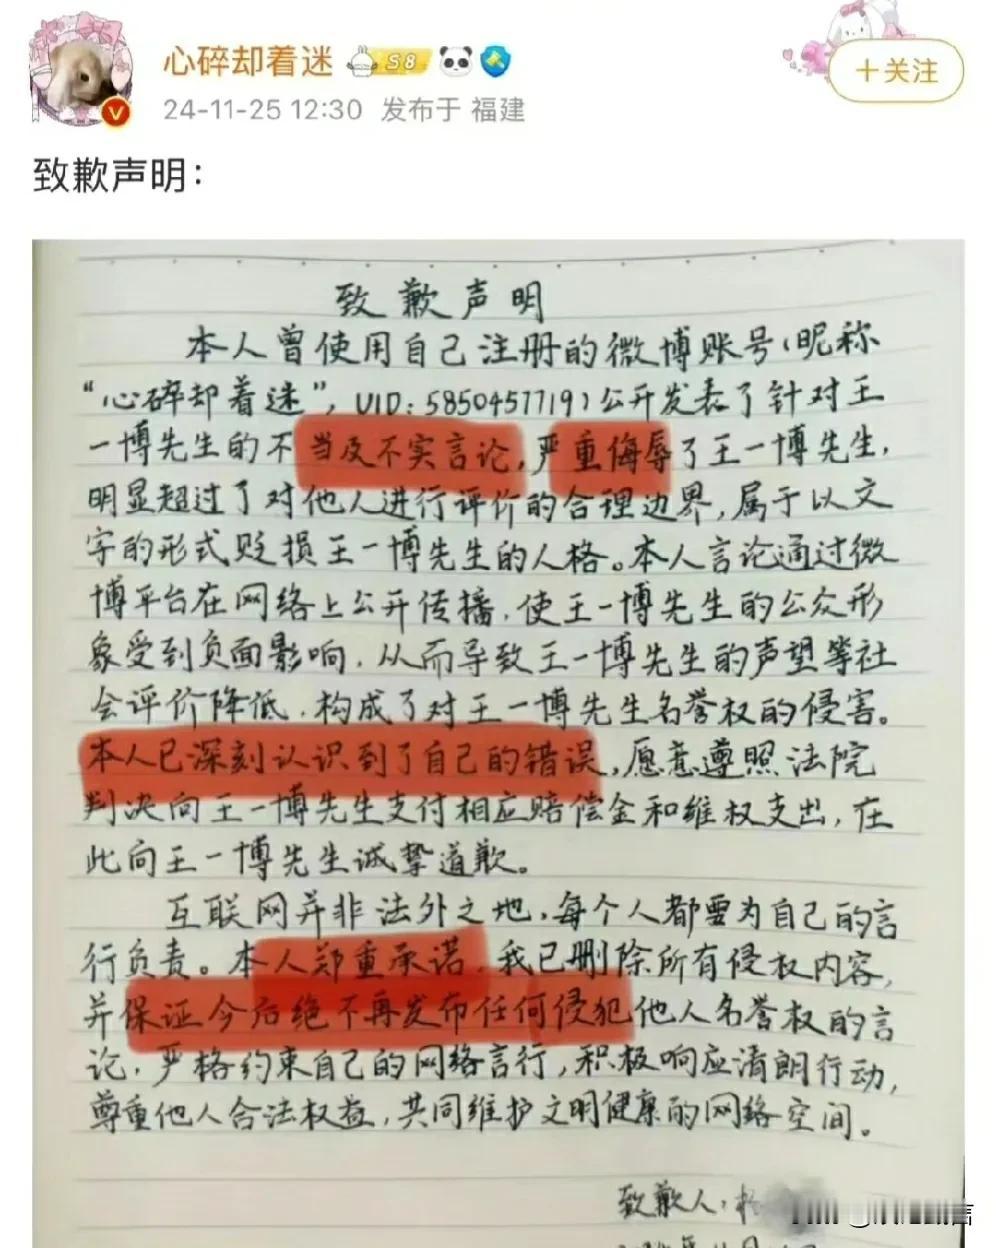 心碎却着迷 S8
+关注
24-11-25 12:30 发布于 福建
致歉声明：
致歉声明
本人曾使用自己注册的微博账号(昵称
“心碎却着迷”，UID:5850457719)公开发表了针对王
一博先生的不当及不实言论,严重侮辱了王一博先生,
明显超过了对他人进行评价的合理边界,属于以文
字的形式贬损王一博先生的人格。本人言论通过微
博平台在网络上公开传播,使王一博先生的公众形
象受到负面影响,从而导致王一博先生的声望等社
会评价降低,构成了对王一博先生名誉权的侵害。
本人已深刻认识到了自己的错误,愿意遵照法院
判决向王一博先生支付相应赔偿金和维权支出,在
此向王一博先生诚挚道歉。
互联网并非法外之地,每个人都要为自己的言
行负责。本人郑重承诺,我已删除所有侵权内容,
并保证今后绝不再发布任何侵犯他人名誉权的言
论,严格约束自己的网络言行,积极响应清朗行动,
尊重他人合法权益,共同维护文明健康的网络空间。
致歉人: